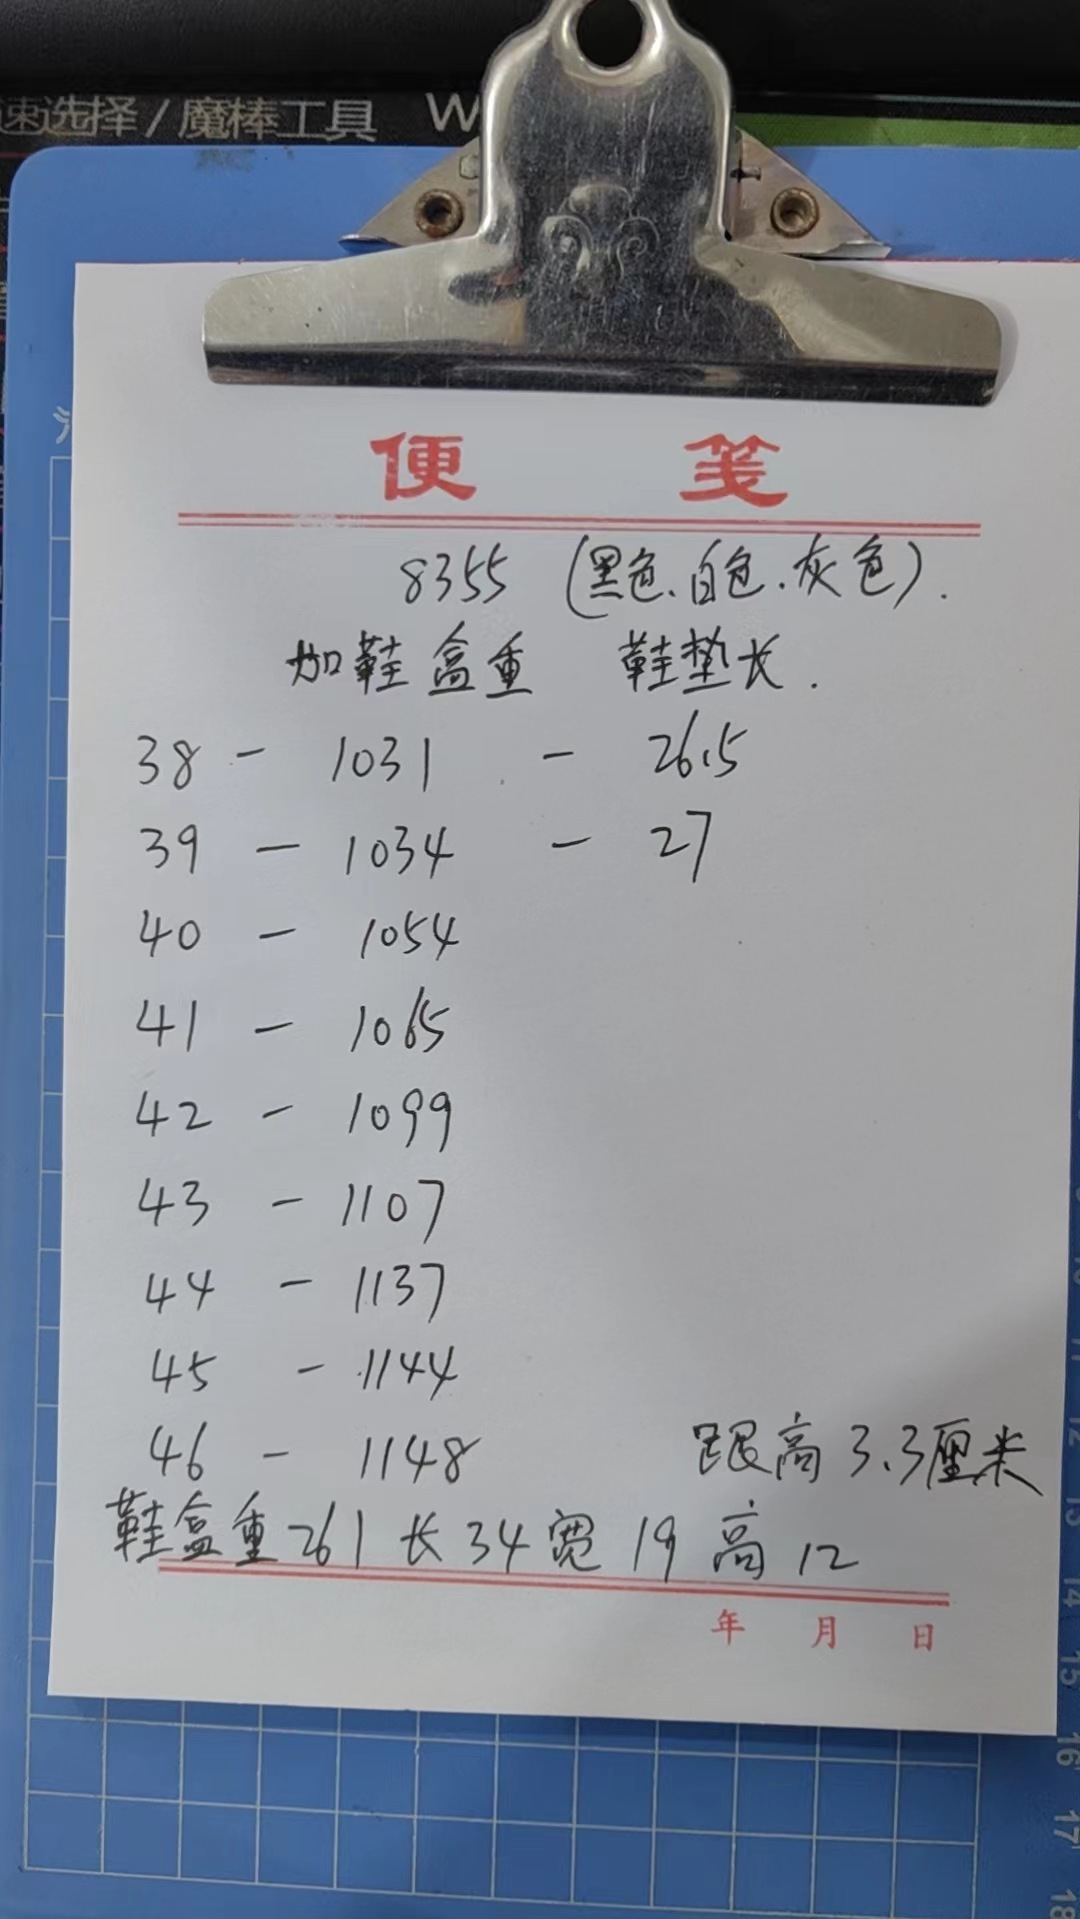 速选择/魔棒工具 W
便 笺
8355 (黑色、白色、灰色).
加鞋盒重 鞋垫长.
38 - 1031 - 26.5
39 - 1034 - 27
40 - 1054
41 - 1065
42 - 1099
43 - 1107
44 - 1137
45 - 1144
46 - 1148 跟高3.3厘米
鞋盒重261 长34宽19高12
年 月 日
12
13
14
15
16
17
18